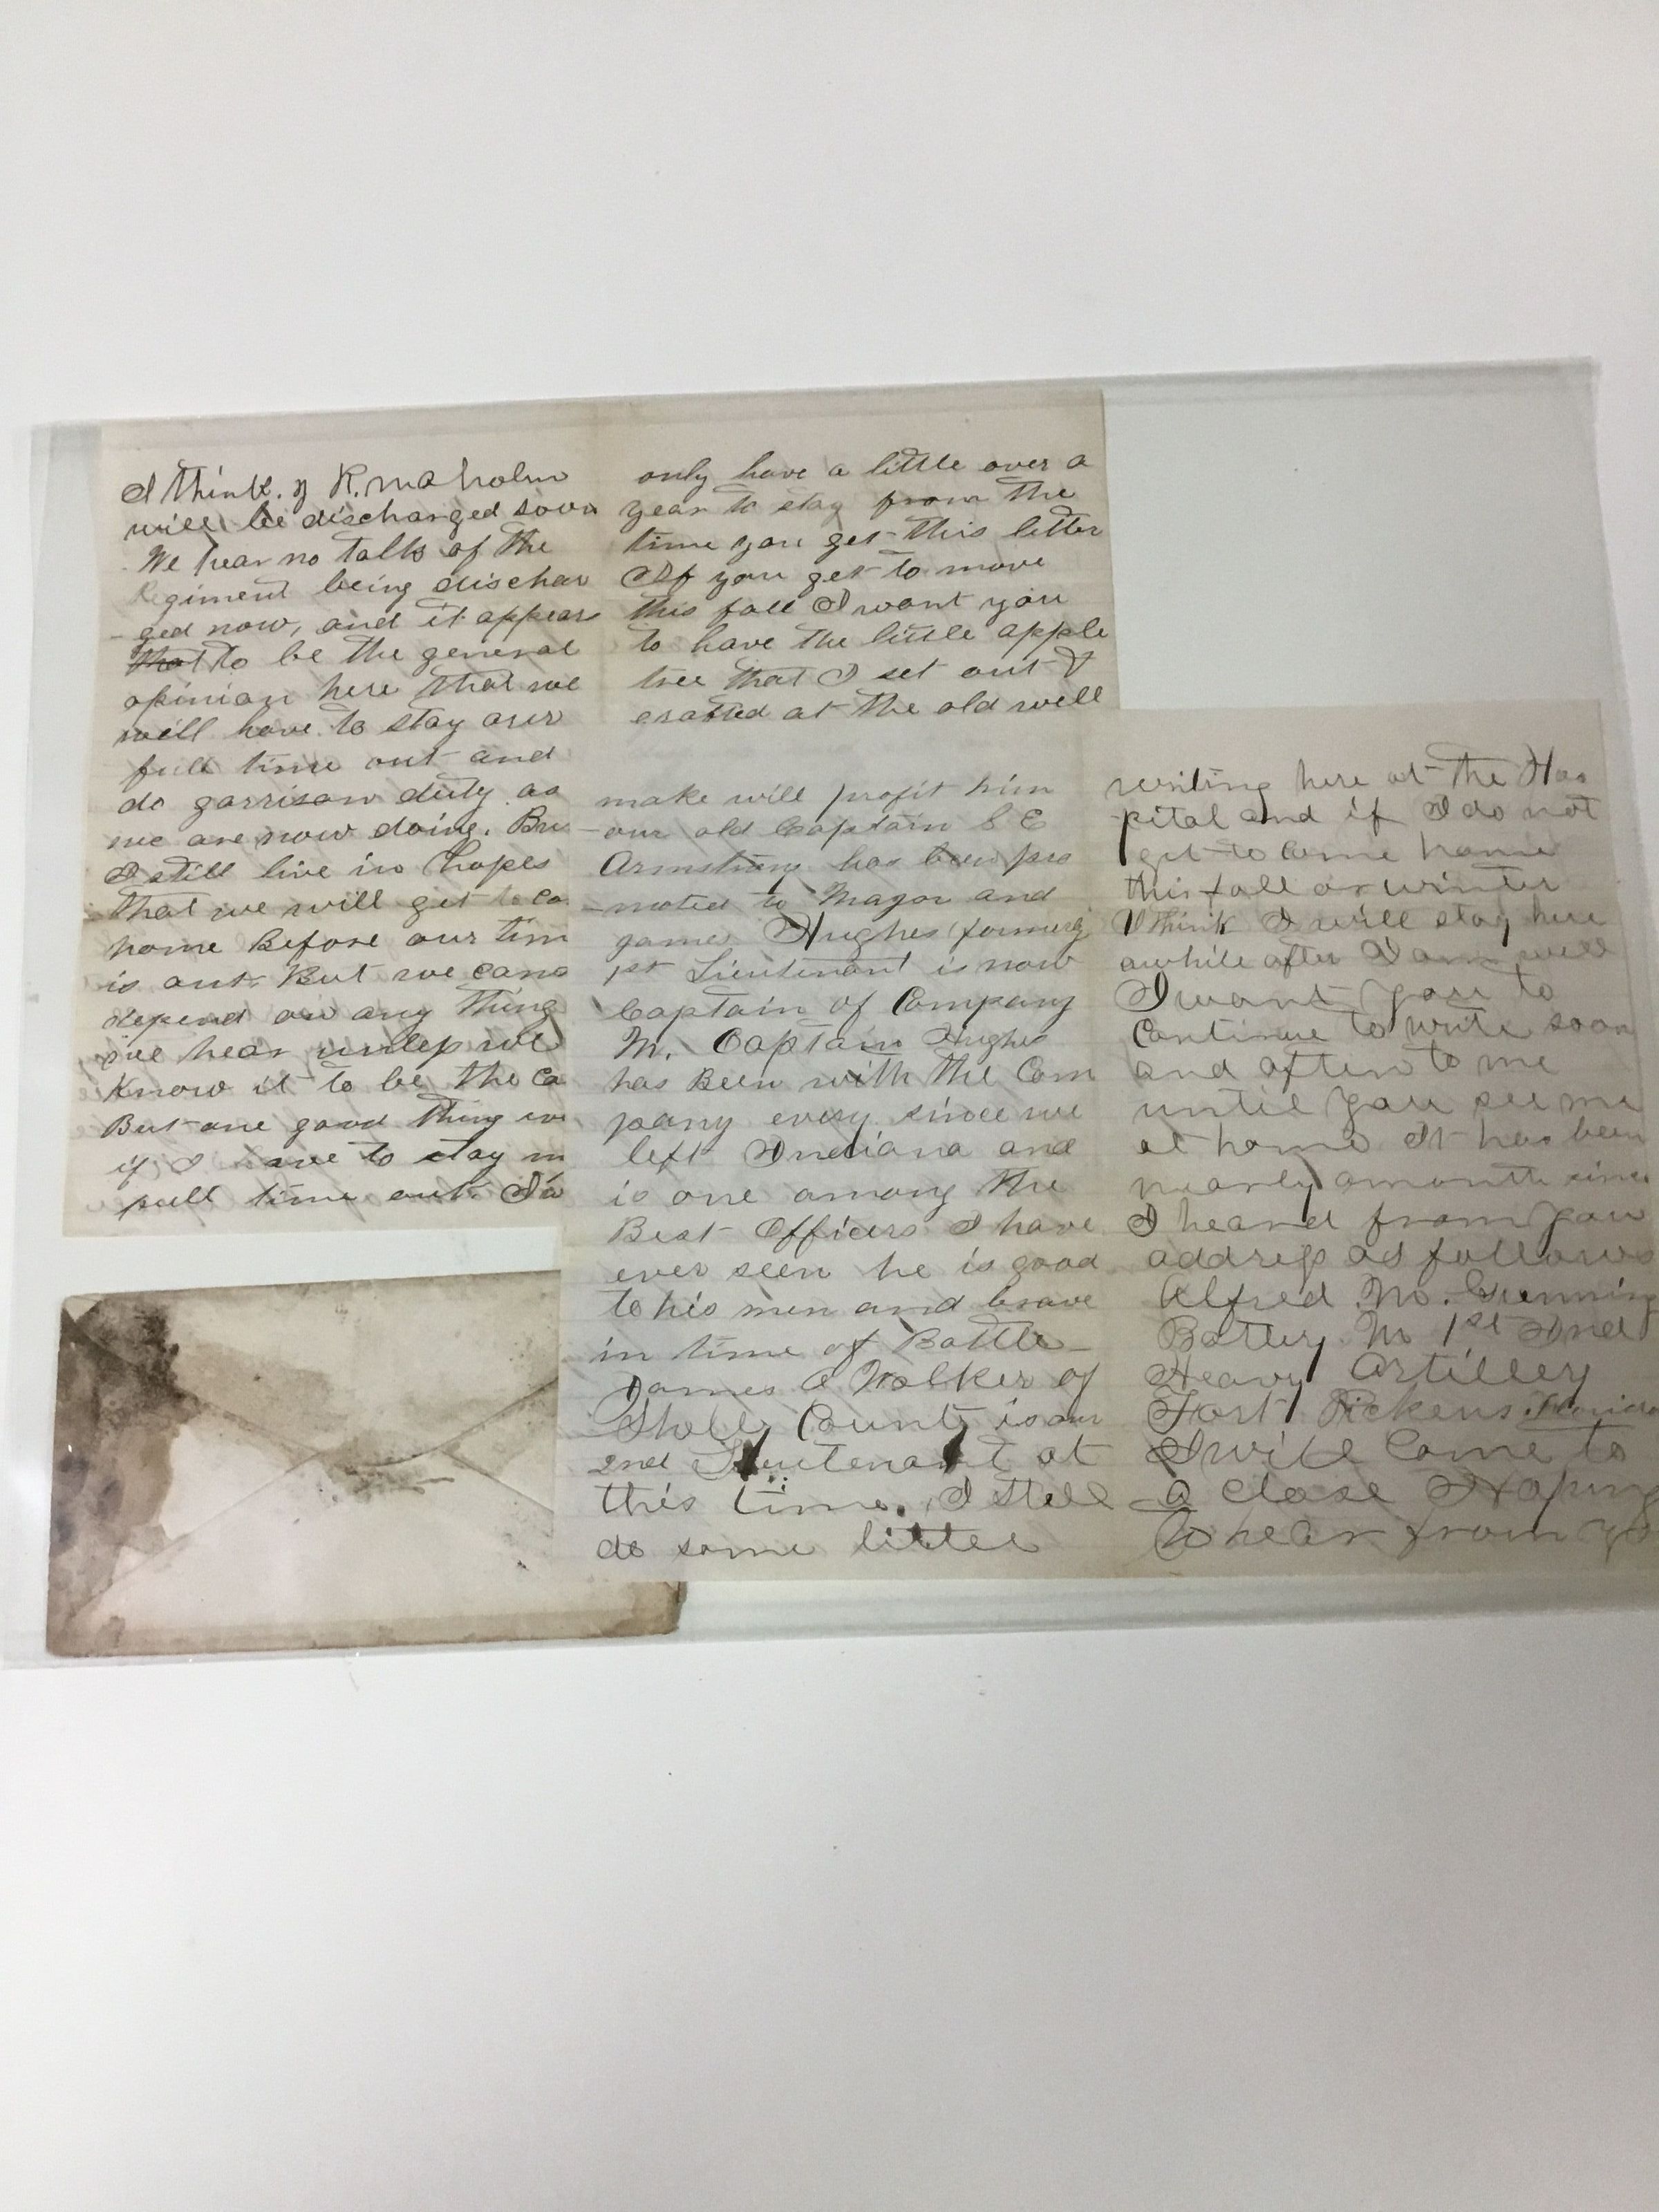 I think. y R. Maholm
will be discharged soon
We hear no talk of the
Regiment being dischar
ged now, and it appears
that to be the general
opinion here that we
will have to stay our
full time out and
do garrison duty as
we are now doing. Bu
I still live in hopes
that we will get to co
home Before our tim
is out But we cano
depend on any thing
we hear unless we
Know it to be the Ca
But one good thing
if I have to stay m
full time out. I
only have a little over a
year to stay from the
time you get this letter
If you get to move
this fall I want you
to have the little apple
tree that I set out &
grafted at the old well
make will profit him
our old Captain S E
Armstrong has been pro
moted to Major and
James Hughes formerly
1st Lieutenant is now
Captain of Company
M. Captain Hughes
has Been with the Com
pany every since we
left Indiana and
is one among the
Best Officers I have
ever seen he is good
to his men and brave
in time of Battle
James A Walker of
Shelby County is our
2nd Lieutenant at
this time. I still
do some little
writing here at the Hos
pital and if I do not
get to come home
this fall or winter
I think I will stay here
awhile after I am well
I want you to
Continue to write soon
and often to me
until you see me
at home It has been
nearly a month since
I heard from you
address as follows
Alfred M. Gunning
Battery M 1st Ind
Heavy Artillery
Fort Pickens Florida
I will Come to
a close Hoping
to hear from yo